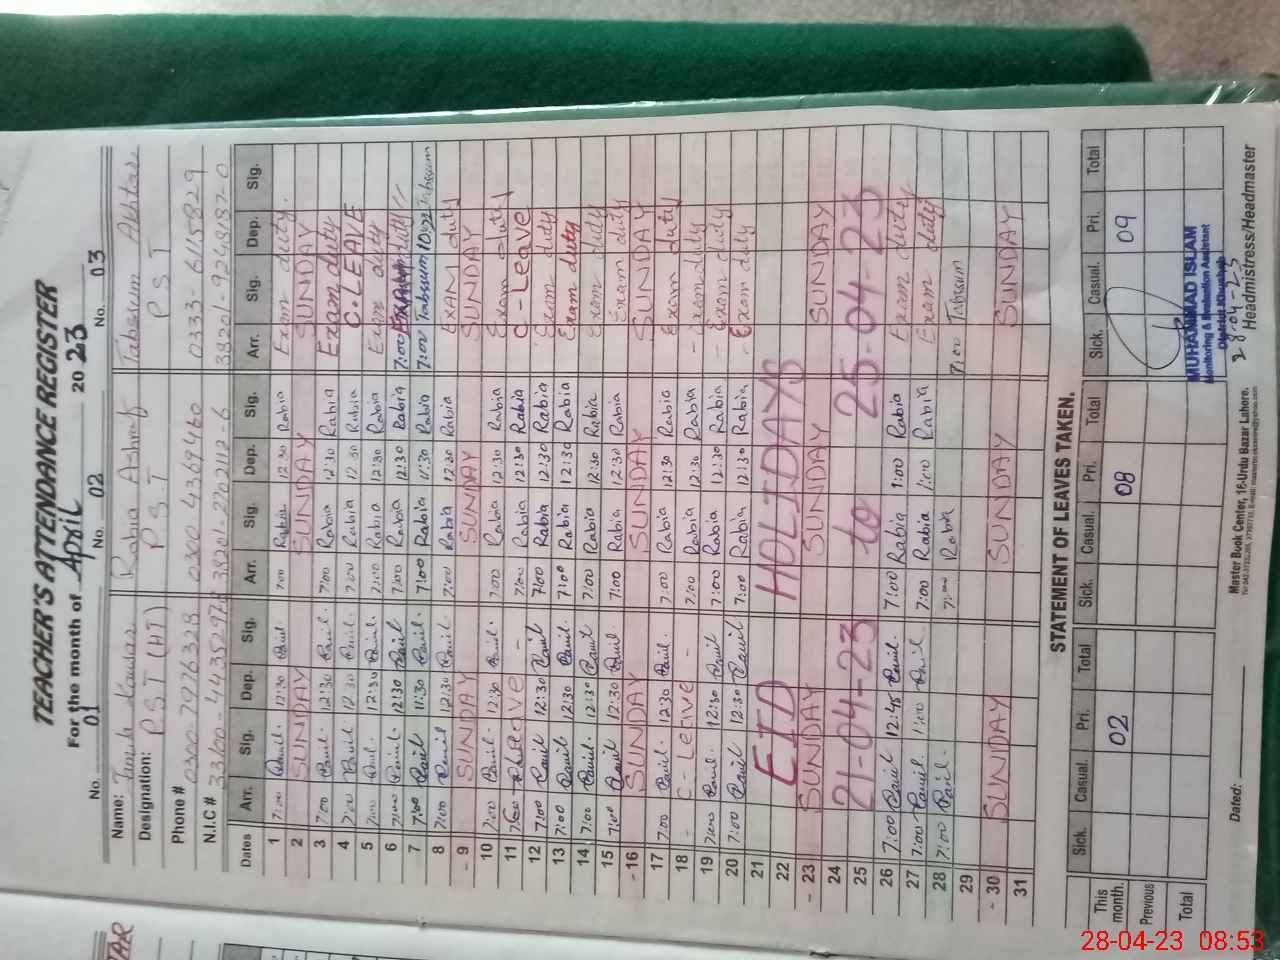 TEACHER'S ATTENDANCE REGISTER
For the month of April 2023
No. 01 No. 02 No. 03
Name: Kausar Rabia Ashraf Tabssum Akhtar
Designation: P.S.T (HT) P.S.T P S T
Phone # 0300-7926328 0300 4369460 0333-6115829
N.I.C #
Dates Arr. Sig. Dep. Sig. Arr. Sig. Dep. Sig. Arr. Sig. Dep. Sig.
1 7:00 12:30 7:00 Rabia 12:30 Rabia Exam duty.
2 SUNDAY SUNDAY SUNDAY
3 7:00 12:30 7:00 Rabia 12:30 Rabia Exam duty
4 7:00 12 30 7:00 Rabia 12 30 Rabia C.LEAVE
5 7:00 12:30 7:00 Rabia 12:30 Rabia Exam duty
6 7:00 12:30 7:00 Rabia 12:30 Rabia 7:00
7 7:00 11:30 7:00 Rabia 11:30 Rabia 7:00 Tabssum Tabssum
8 7:00 12:30 7:00 Rabia 12:30 Rabia EXAM duty
- 9 SUNDAY SUNDAY SUNDAY
10 7:00 12:30 7:00 Rabia 12:30 Rabia Exam duty
11 7:00 Rabia 12:30 Rabia C-Leave
12 7:00 12:30 7:00 Rabia 12:30 Rabia Exam duty
13 7:00 12:30 7:00 Rabia 12:30 Rabia Exam duty
14 7:00 12:30 7:00 Rabia 12:30 Rabia Exam duty
15 7:00 12:30 7:00 Rabia 12:30 Rabia Exam duty
- 16 SUNDAY SUNDAY SUNDAY
17 7:00 12:30 7:00 Rabia 12:30 Rabia Exam duty
18 - C - Leave - 7:00 Rabia 12:30 Rabia - Exam duty
19 7:00 12:30 7:00 Rabia 12:30 Rabia - Exam duty
20 7:00 12:30 7:00 Rabia 12:30 Rabia - Exam duty
21
22 EID HOLIDAYS
- 23 SUNDAY SUNDAY SUNDAY
24
25 21-04-23 to 25-04-23
26 7:00 12:45 7:00 Rabia 1:00 Rabia Exam duty
27 7:00 1:00 7:00 Rabia 1:00 Rabia Exam duty
28 7:00 7:00 Rabia 7:00 Tabssum
29
- 30 SUNDAY SUNDAY SUNDAY
31
STATEMENT OF LEAVES TAKEN.
Sick. Casual. Pri. Total Sick. Casual. Pri. Total Sick. Casual. Pri. Total
This month. 02 08 09
Previous
Total
MUHAMMAD ISLAM
Monitoring & Evaluation Assistant
District Khushab
28-04-23
Dated:
Master Book Center, 16-Urdu Bazar Lahore.
Headmistress/Headmaster
28-04-23 08:53